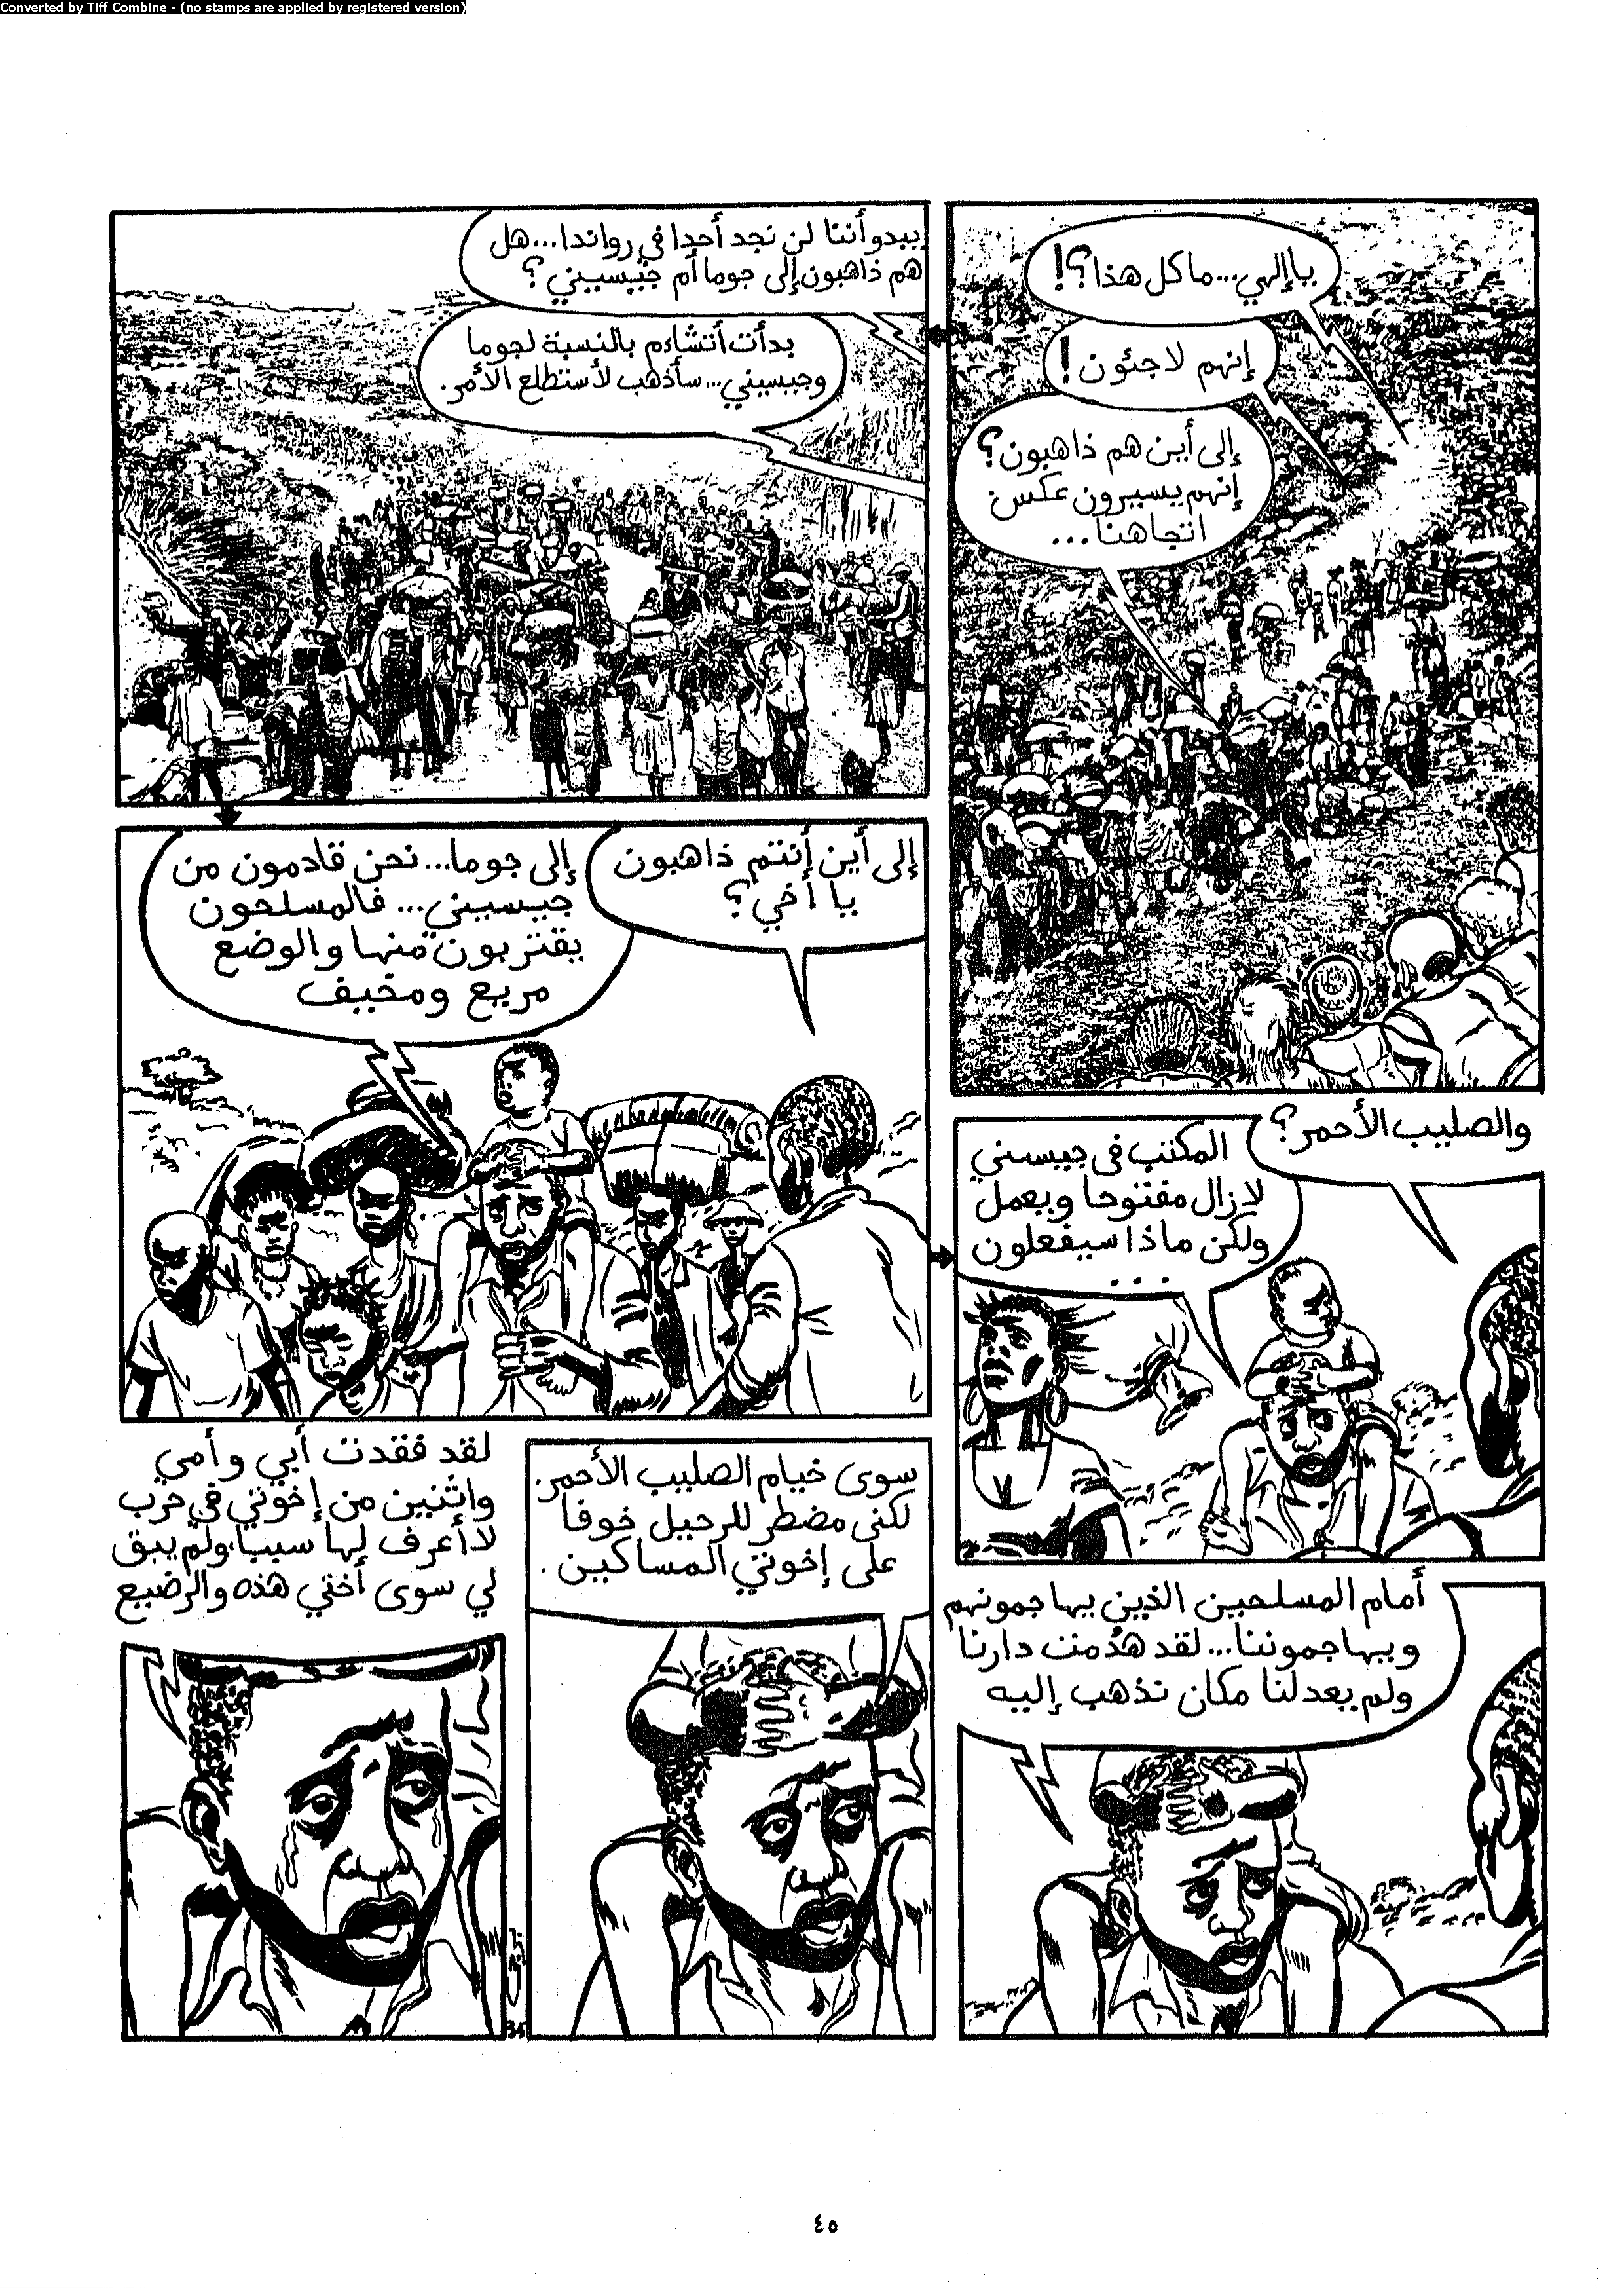 Converted by Tiff Combine - (no stamps are applied by registered version)
يا إلهي...ما كل هذا؟!
إنهم لاجئون!
إلى أين هم ذاهبون؟
إنهم يسيرون عكس
اتجاهنا...
يبدو أننا لن نجد أحدا في رواندا...هل
هم ذاهبون إلى جوما أم جيسيني؟
بدأت أتشاءم بالنسبة لجوما
وجيسيني...سأذهب لأستطلع الأمر.
إلى أين أنتم ذاهبون
يا أخي؟
إلى جوما...نحن قادمون من
جيسيني...فالمسلحون
يقتربون منها والوضع
مريع ومخيف
والصليب الأحمر؟
المكتب في جيسني
لازال مفتوحا ويعمل
ولكن ماذا سيفعلون
...
أمام المسلحين الذين يهاجمونهم
ويهاجموننا...لقد هدمت دارنا
ولم يعد لنا مكان نذهب إليه
سوى خيام الصليب الأحمر.
لكنى مضطر للرحيل خوفا
على إخوتي المساكين.
لقد فقدت أبي وأمي
واثنين من إخوتي في حرب
لا أعرف لها سببا، ولم يبق
لي سوى أختي هذه والرضيع
35
٤٥